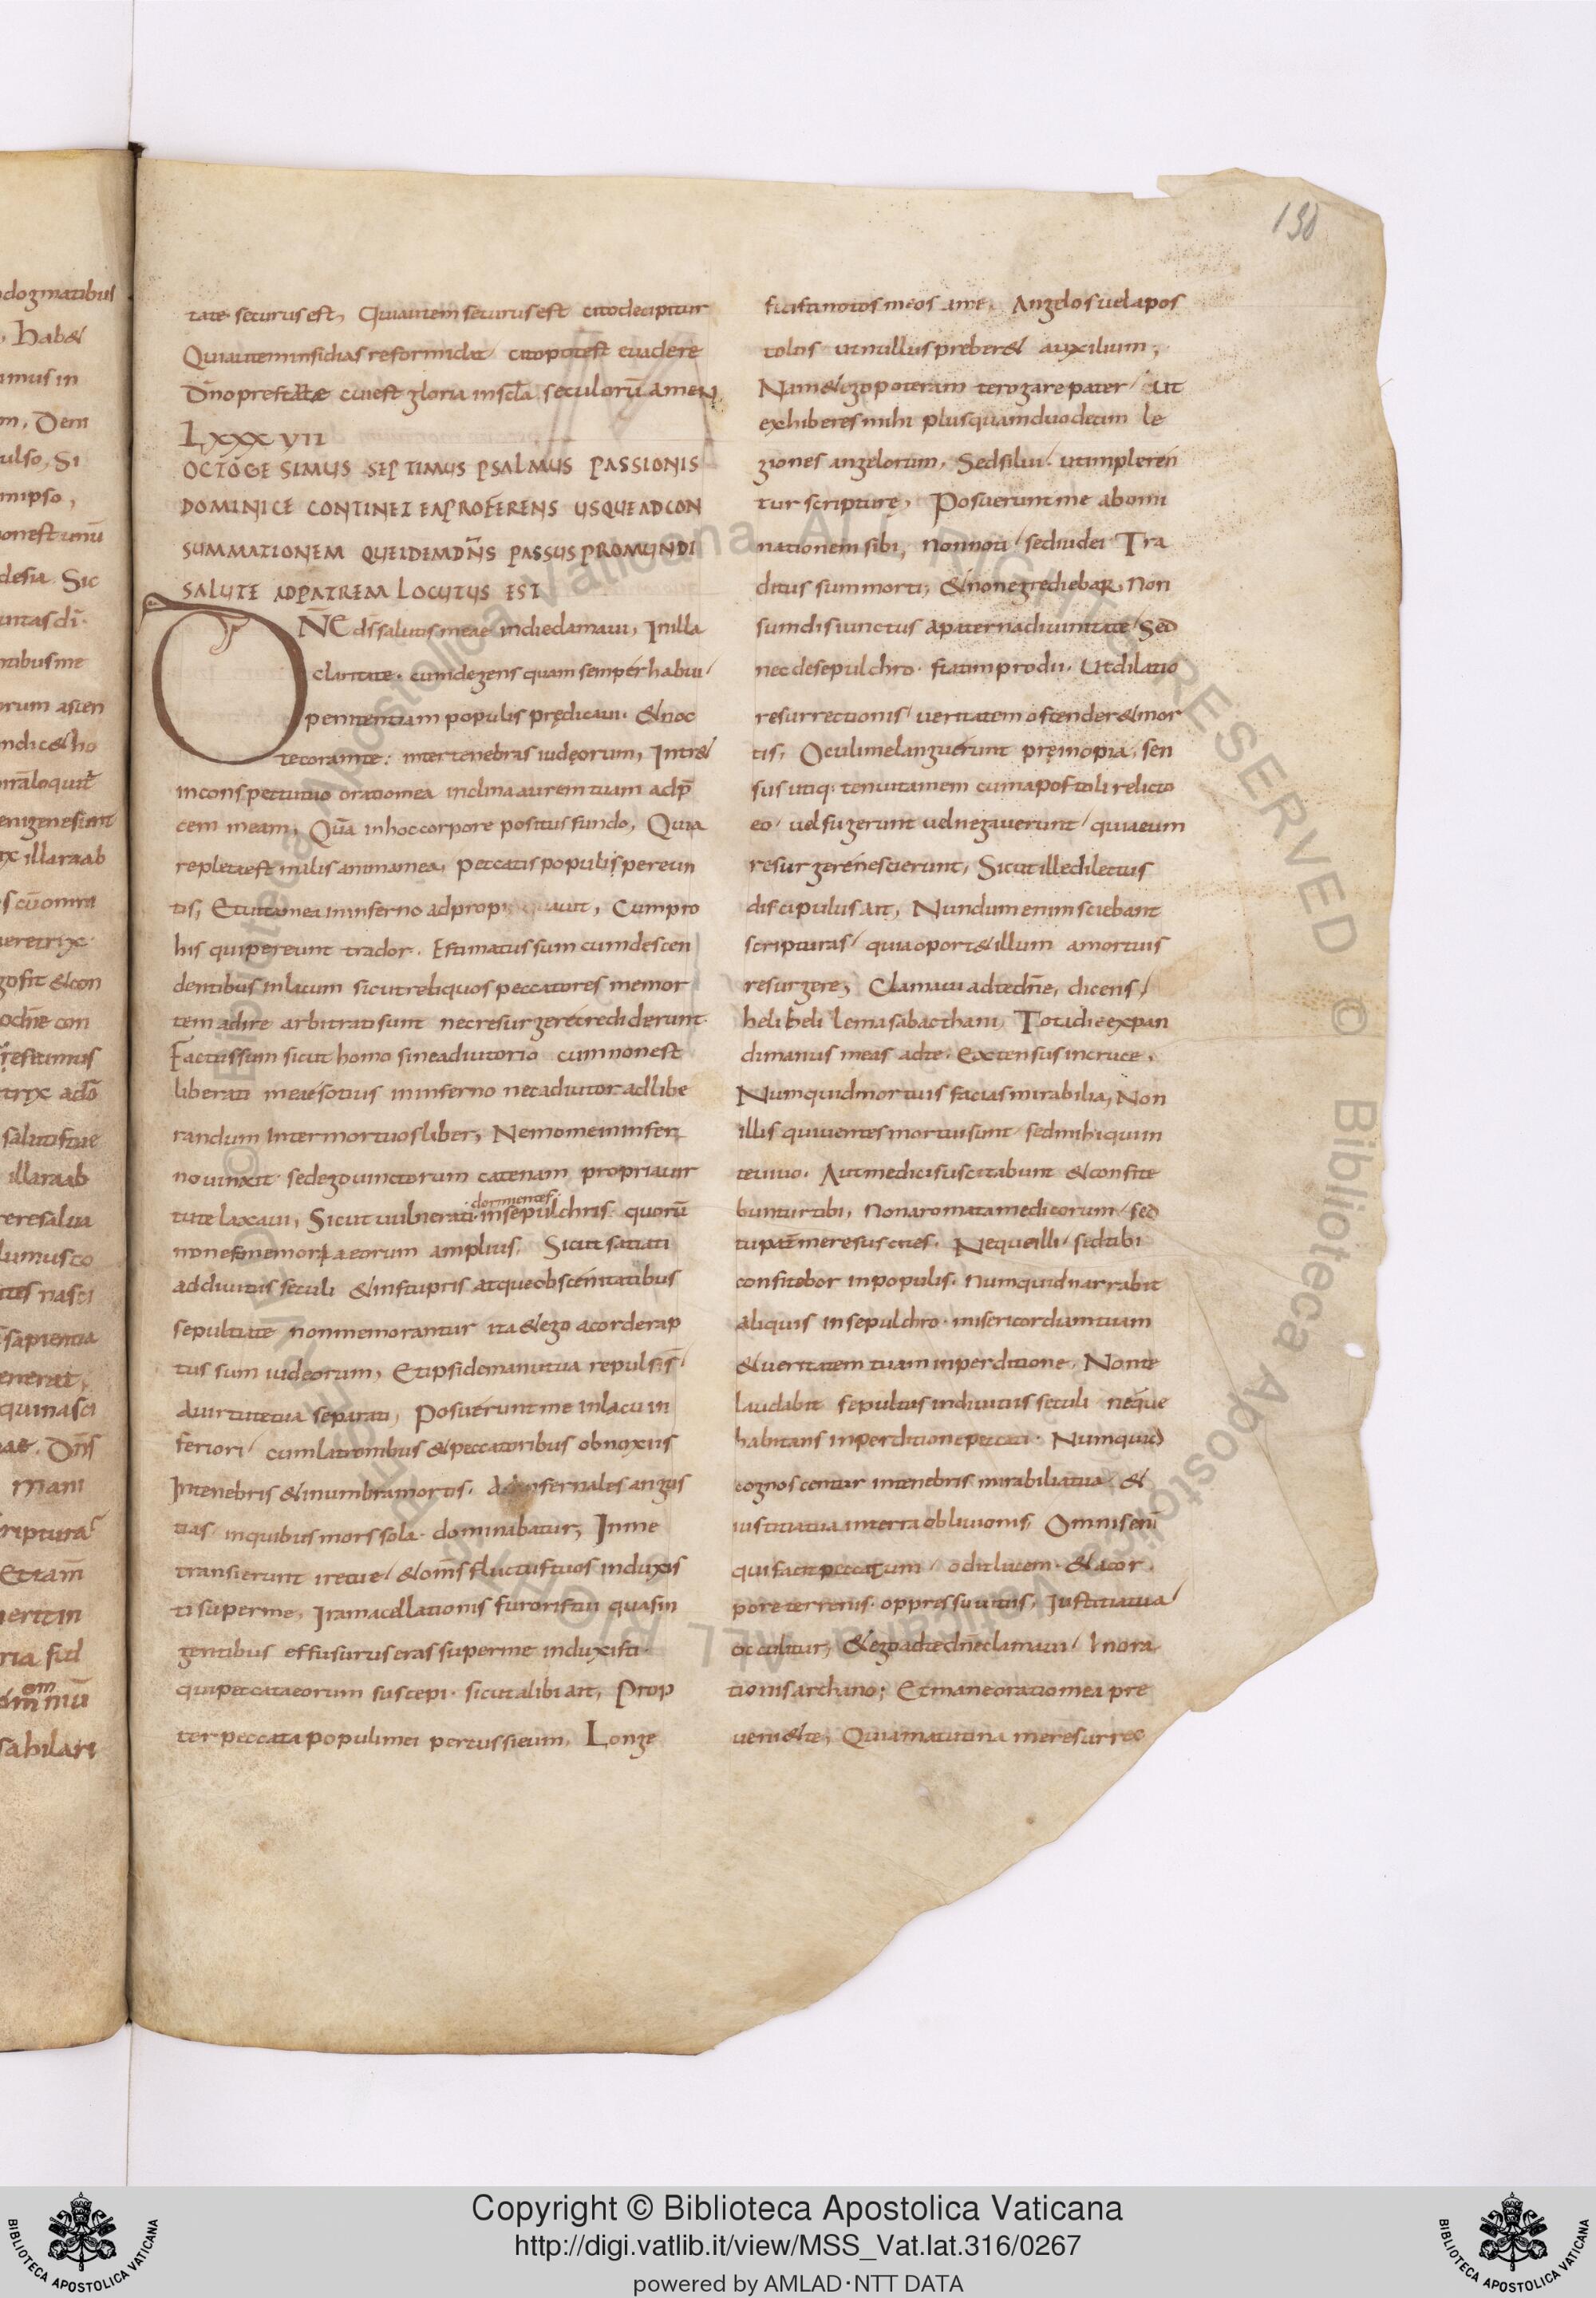 dogmatibus
Habet
imus in
ulso, Si
inipso,
onest unū
desia. Sic
untas di.
ntibus me
orum ascen
indic& ho
enigenesimt
ix illaraab
s cū omni
ueretrix
go sit & con
odn̄e con
restimus
salutis tue
illaraab
rere salua
lumus co
nasci
sapientia
enerat,
qui nasci
Dn̄s
mani
riptura
Etiam̄
uerit in
ria fid
om
sabilari
130
tate securus est, Qui autem securus est cito decipitur
Qui autem insidias reformidat cito potest euadere
Dn̄o prestāte cui est gloria in scl̄a seculorū amen.
LXXXVII
OCTOGESIMUS SEPTIMUS PSALMUS PASSIONIS
DOMINICE CONTINET EA PROFERENS USQUE AD CON
SUMMATIONEM QUE IDEM DN̄S PASSUS PRO MUNDI
SALUTE AD PATREM LOCUTUS EST
DN̄E ds̄ salutis meae in die clamaui, In illa
claritate. cum degens quam semper habui/
penitentiam populis prędicaui. & noc
te coram te: inter tenebras iudęorum, Intr&
in conspectu tuo oratio mea inclina aurem tuam ad p̄
cem meam, Quā in hoc corpore positus fundo, Quia
repleta est malis anima mea, peccatis populi pereun
tis, Et uita mea in inferno adpropi uit, Cum pro
his qui pereunt trador. Estimatus sum cum descen
dentibus in lacum sicut reliquos peccatores memor
tem adire arbitrati sunt nec resurgere crediderunt.
Factus sum sicut homo sine adiutorio cum non est
liberati meae sotius in inferno nec adiutor ad libe
randum Inter mortuos liber, Nemo me in infer
no uinxit. sed ego uinctorum catenam propria uir
dormientes
tute laxaui, Sicut uulnerati in sepulchris quorū
non es memor/ ia eorum amplius, Sicut satiati
ad diuitiis seculi & in stupris atque obscenitatibus
sepultate non memorantur ita & ego a corde rap
tus sum iudeorum, Et ipsi de manu tua repulsi s̄/
a uirtute tua separati, Posuerunt me in lacu in
feriori/ cum latronibus & peccatoribus obnoxiis
In tenebris & in umbra mortis. Ad infernales angus
tias in quibus mors sola. dominabatur, In me
transierunt ire tue/ & om̄s fluctus tuos induxis
ti super me, Iram acellationis furoris tui quas in
gentibus effusurus eras super me induxisti.
qui peccata eorum suscepi. sicut alibi ait, Prop
ter peccata populi mei percussi eum, Longe
fecisti notos meos a me. Angelos uel apos
tolos ut nullus preber& auxilium,
Nam & ego poteram te rogare pater/ ut
exhiberes mihi plus quam duodecim le
giones angelorum. Sed silui. ut impleren
tur scripture, Posuerunt me abomi
nationem sibi, non noti/ sed iudei Tra
ditus sum morti, & non egrediebar. Non
sum disiunctus a paterna diuinitate/ Sed
nec de sepulchro. statim prodii. Ut dilatio
resurrectionis/ ueritatem ostender& mor
tis, Oculi me languerunt prę inopia, sen
sus utiq: tenui tamen cum apostoli relicto
eo/ uel fugerunt uel negauerunt/ quia eum
resurgere nescierunt, Sicut ille dilectus
discipulus ait, Nundum enim sciebant
scripturas/ quia oport& illum a mortuis
resurgere, Clamaui ad te dn̄e, dicens/
heli heli lema sabacthani, Tota die expan
di manus meas ad te. Extensus in cruce,
Numquid mortuis facias mirabilia, Non
illis qui uientes mortui sunt/ sed mihi qui in
te uiuo. Aut medici suscitabunt & confite
buntur tibi, non aromata medicorum/ sed
tu pat̄ me resuscites. Neque illi/ sed tibi
confitebor in populis. Numquid narrabit
aliquis in sepulchro. misericordiam tuam
& ueritatem tuam in perditione. Non te
laudabit sepultus in diuitiis seculi neque
habitans in perditione peccati. Numquid
cognoscentur in tenebris mirabilia tua. &
iustitia tua in terra obliuionis, Omnis eni
qui facit peccatum/ odit lucem. & a cor
pore terrenis. oppressu uitiis, Iustitia tua/
occulitur, & ego ad te dn̄e clamaui/ In ora
tionis archano; Et mane oratio mea pre
ueni& te, Quia matutina me resurrec
Copyright © Biblioteca Apostolica Vaticana
http://digi.vatlib.it/view/MSS_Vat.lat.316/0267
powered by AMLAD·NTT DATA
BIBLIOTECA APOSTOLICA VATICANA
BIBLIOTECA APOSTOLICA VATICANA